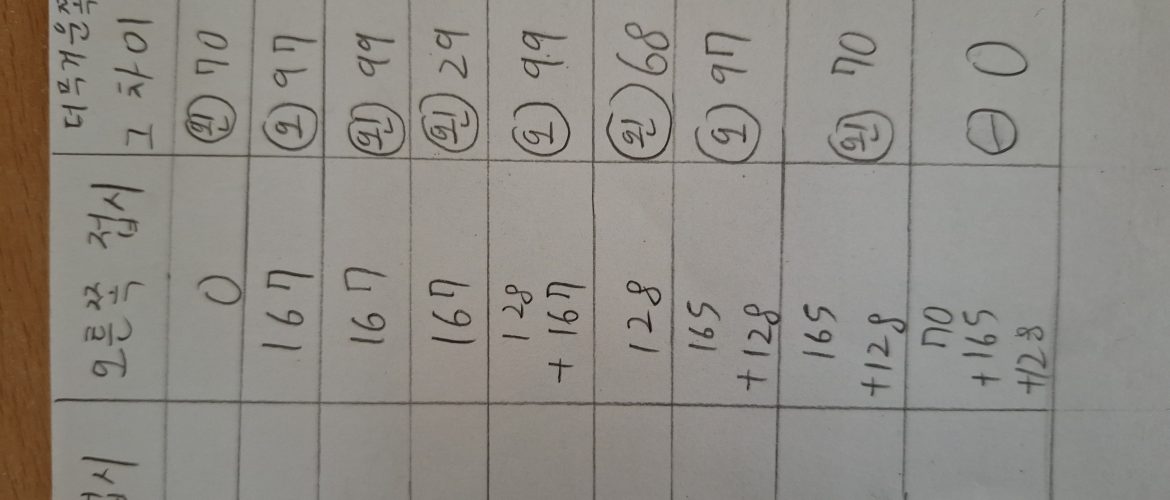 접시 오른쪽 접시 더 무거운 쪽
그 차이
0 왼 70
167 오 97
167 왼 99
167 왼 29
128
+167 오 99
128 왼 68
165
+128 오 97
165
+128 왼 70
70
+165
+128 - 0